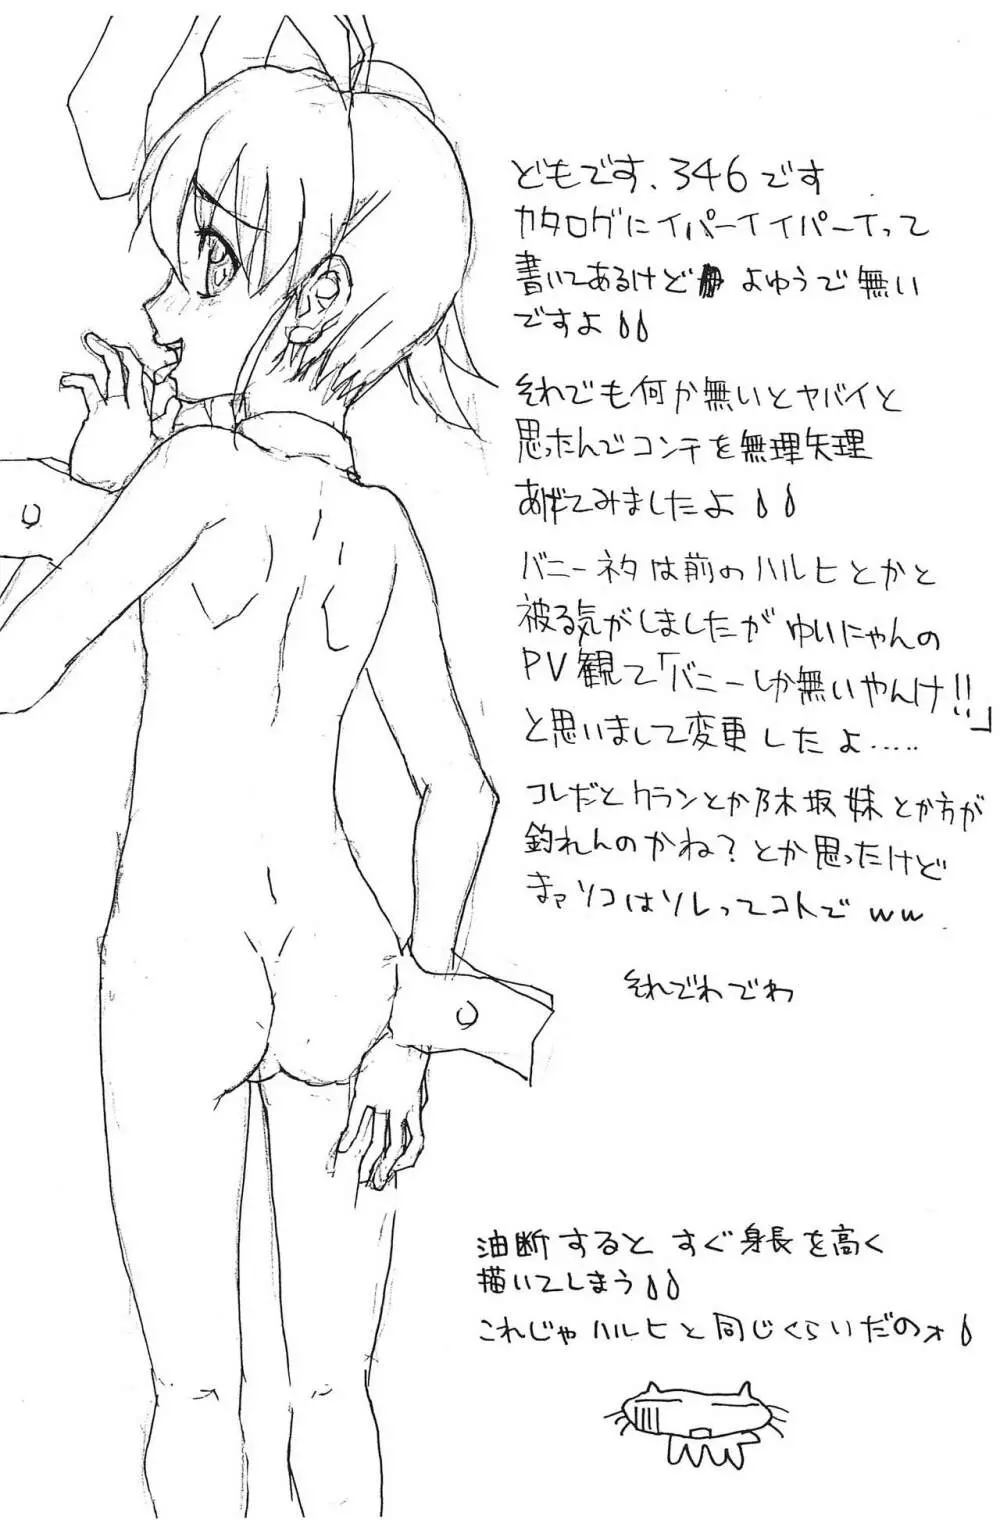 どもです、346です
カタログにイパーイイパーイって
書いてあるけど よゆうで無い
ですよ
それでも何か無いとヤバイと
思ったんでコンテを無理矢理
あげてみましたよ
バニーネタは前のハルヒとかと
被る気がしましたが ゆいにゃんの
PV観て「バニーしか無いやんけ!!」
と思いまして変更したよ……
コレだと クランとか乃木坂妹とか方が
釣れんのかね?とか思ったけど
まァソコはソレってコトで ww
それでわでわ
油断すると すぐ身長を高く
描いてしまう
これじゃハルヒと同じくらいだのォ